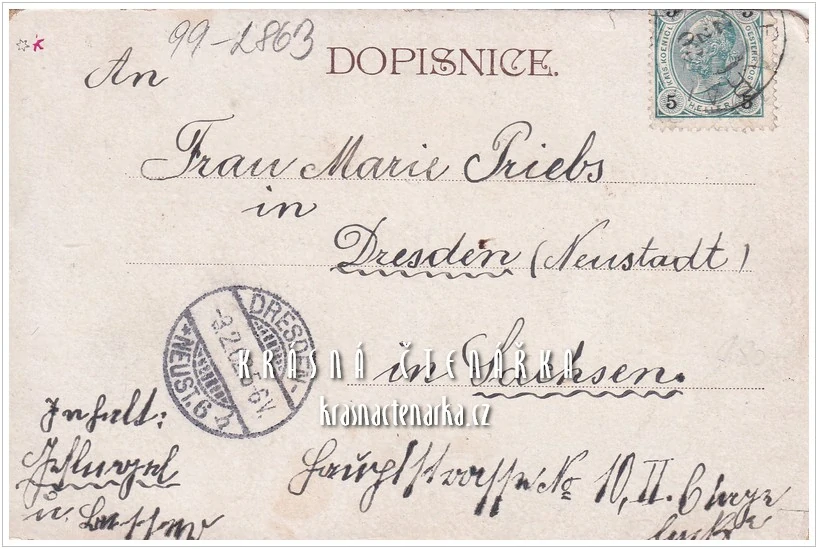 99-2863
DOPISNICE.
An
Frau Marie Priebs
in
Dresden (Neustadt)
in Sachsen.
Hauptstrasse No 10, II. Etage
Inhalt:
u.
DRESDEN-
*NEUST. 6 h
5 5
HELLER
KRÁSNÁ ČTENÁŘKA
krasnactenarka.cz